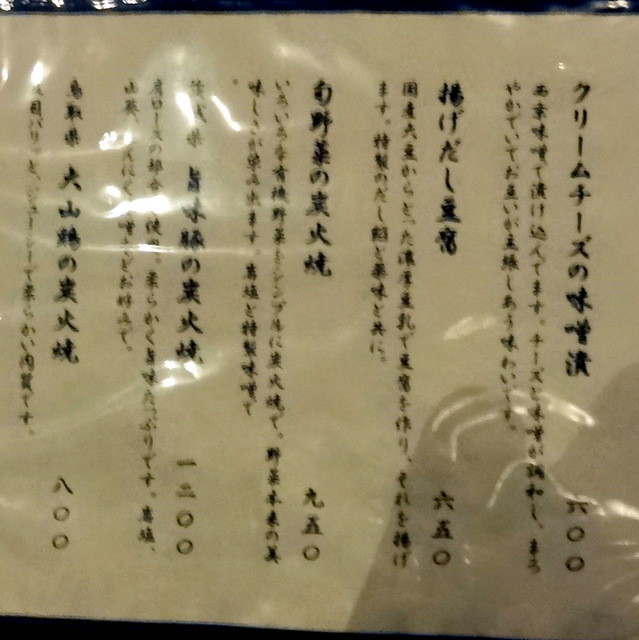 クリームチーズの味噌漬 六〇〇
西京味噌で漬け込んでます。チーズと味噌が調和し、まろ
やかでいてお互いが主張しあう味わいです。
揚げだし豆腐 六五〇
国産大豆からとった濃厚豆乳で豆腐を作り、それを揚げ
ます。特製のだし餡と薬味と共に。
旬野菜の炭火焼 九五〇
いろいろな有機野菜をシンプルに炭火焼で。野菜本来の美
味しさが染み出ます。岩塩と特製味噌で
。
県 旨味豚の炭火焼 一二〇〇
肩ロースの部位を使用。柔らかく旨味たっぷりです。岩塩、
山葵、にんにく味噌などお好みで。
鳥取県 大山鶏の炭火焼 八〇〇
皮目パリッと、ジューシーで柔らかい肉質です。